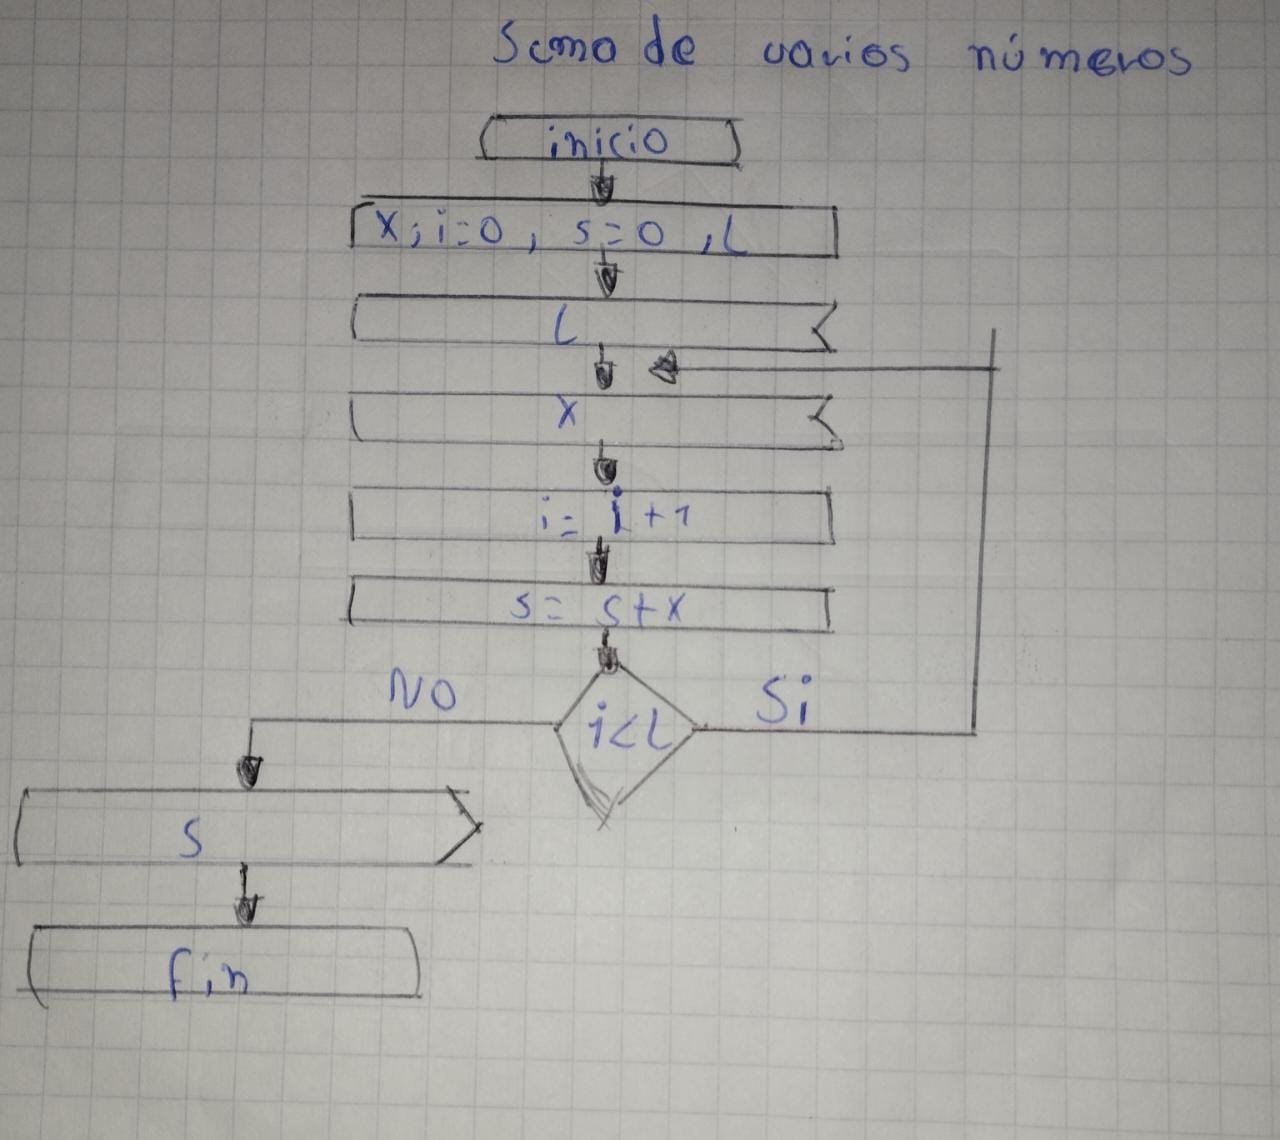 Suma de varios números
inicio
X, i=0, s=0, L
L
X
i= i+1
s= s+x
NO
i<L
Si
S
fin